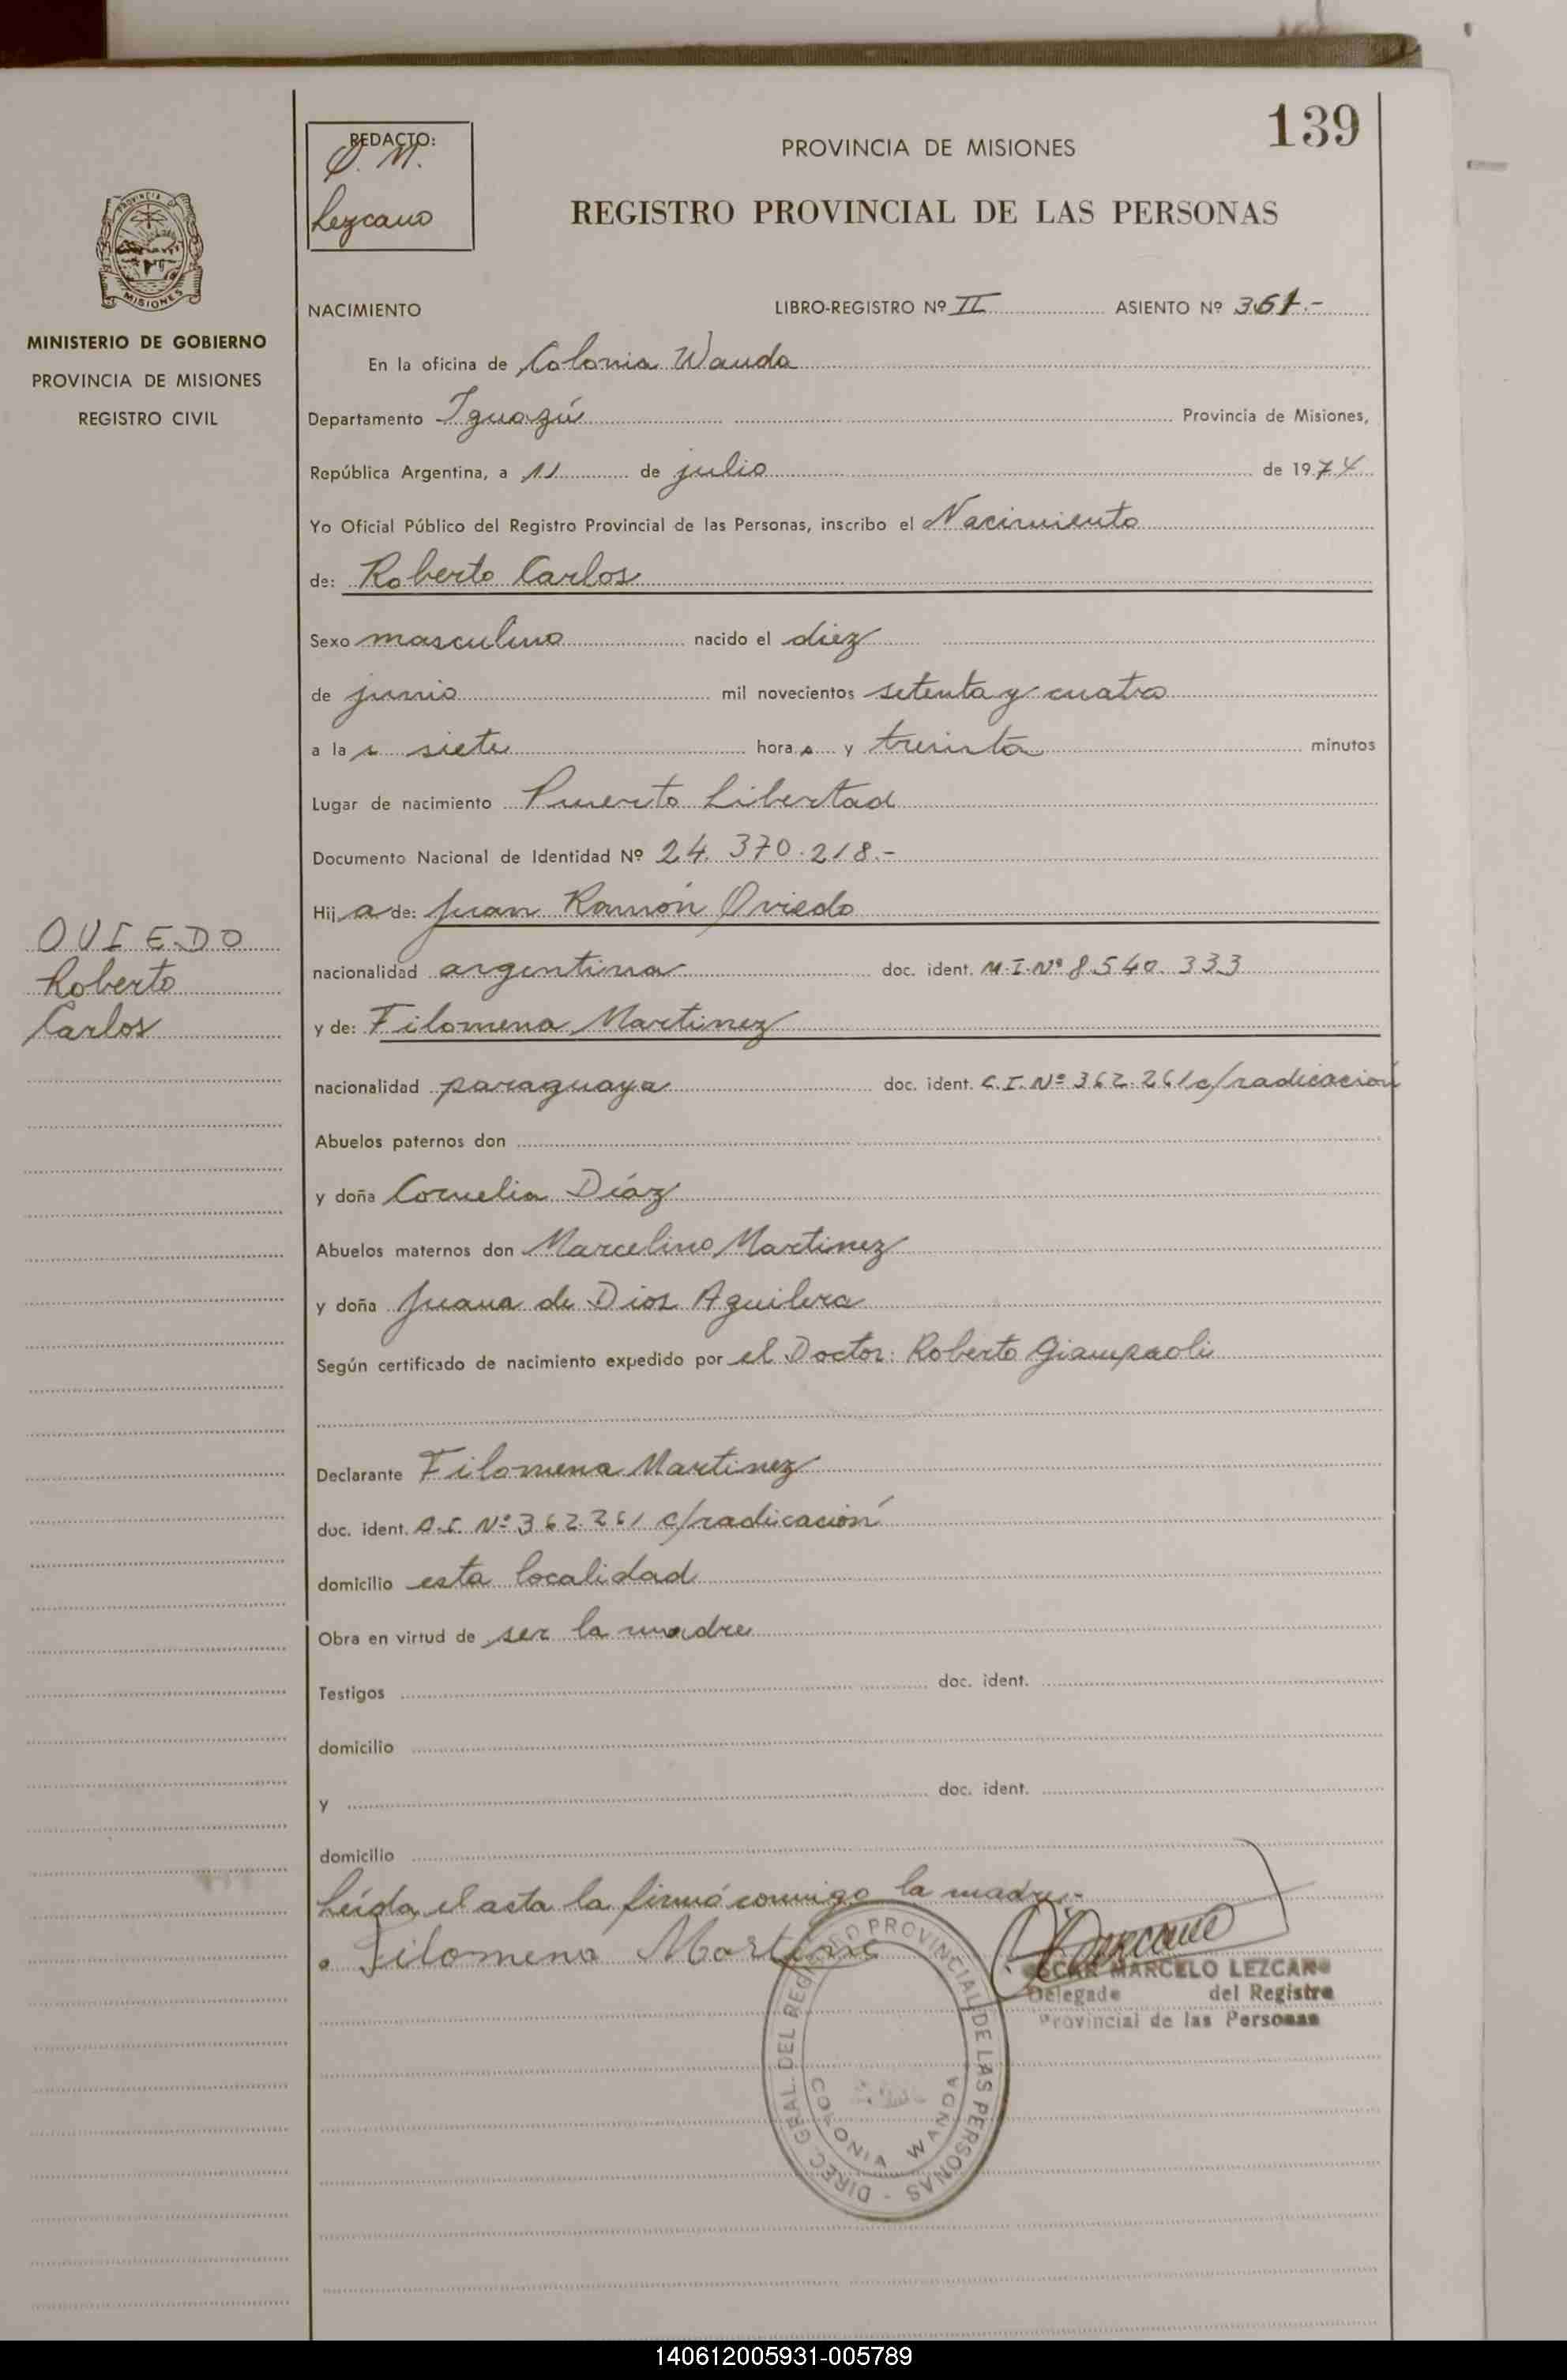 139
REDACTO:
O. M.
Lezcano
PROVINCIA DE MISIONES
REGISTRO PROVINCIAL DE LAS PERSONAS
PROVINCIA DE
MISIONES
MINISTERIO DE GOBIERNO
PROVINCIA DE MISIONES
REGISTRO CIVIL
NACIMIENTO LIBRO-REGISTRO Nº II ASIENTO Nº 361.-
En la oficina de Colonia Wanda
Departamento Iguazú Provincia de Misiones,
República Argentina, a 11 de julio de 1974
Yo Oficial Público del Registro Provincial de las Personas, inscribo el Nacimiento
de: Roberto Carlos
Sexo masculino nacido el diez
de junio mil novecientos setenta y cuatro
a la s siete hora s y treinta minutos
Lugar de nacimiento Puerto Libertad
Documento Nacional de Identidad Nº 24.370.218.-
Hij a de: Juan Ramón Oviedo
OVIEDO
Roberto
Carlos
nacionalidad argentina doc. ident. M.I.Nº 8.540.333
y de: Filomena Martinez
nacionalidad paraguaya doc. ident. C.I. Nº 362.261 c/radicación
Abuelos paternos don
y doña Cornelia Díaz
Abuelos maternos don Marcelino Martinez
y doña Juana de Dios Aguilera
Según certificado de nacimiento expedido por el Doctor: Roberto Giampaoli
Declarante Filomena Martinez
doc. ident. C.I. Nº 362.261 c/radicación
domicilio esta localidad
Obra en virtud de ser la madre
Testigos doc. ident.
domicilio
y doc. ident.
domicilio
Leída el acta la firmó conmigo la madre.-
Filomena Martine
OSCAR MARCELO LEZCANO
Delegado del Registro
Provincial de las Personas
DIREC. GRAL. DEL REGISTRO PROVINCIAL DE LAS PERSONAS -
COLONIA WANDA
140612005931-005789